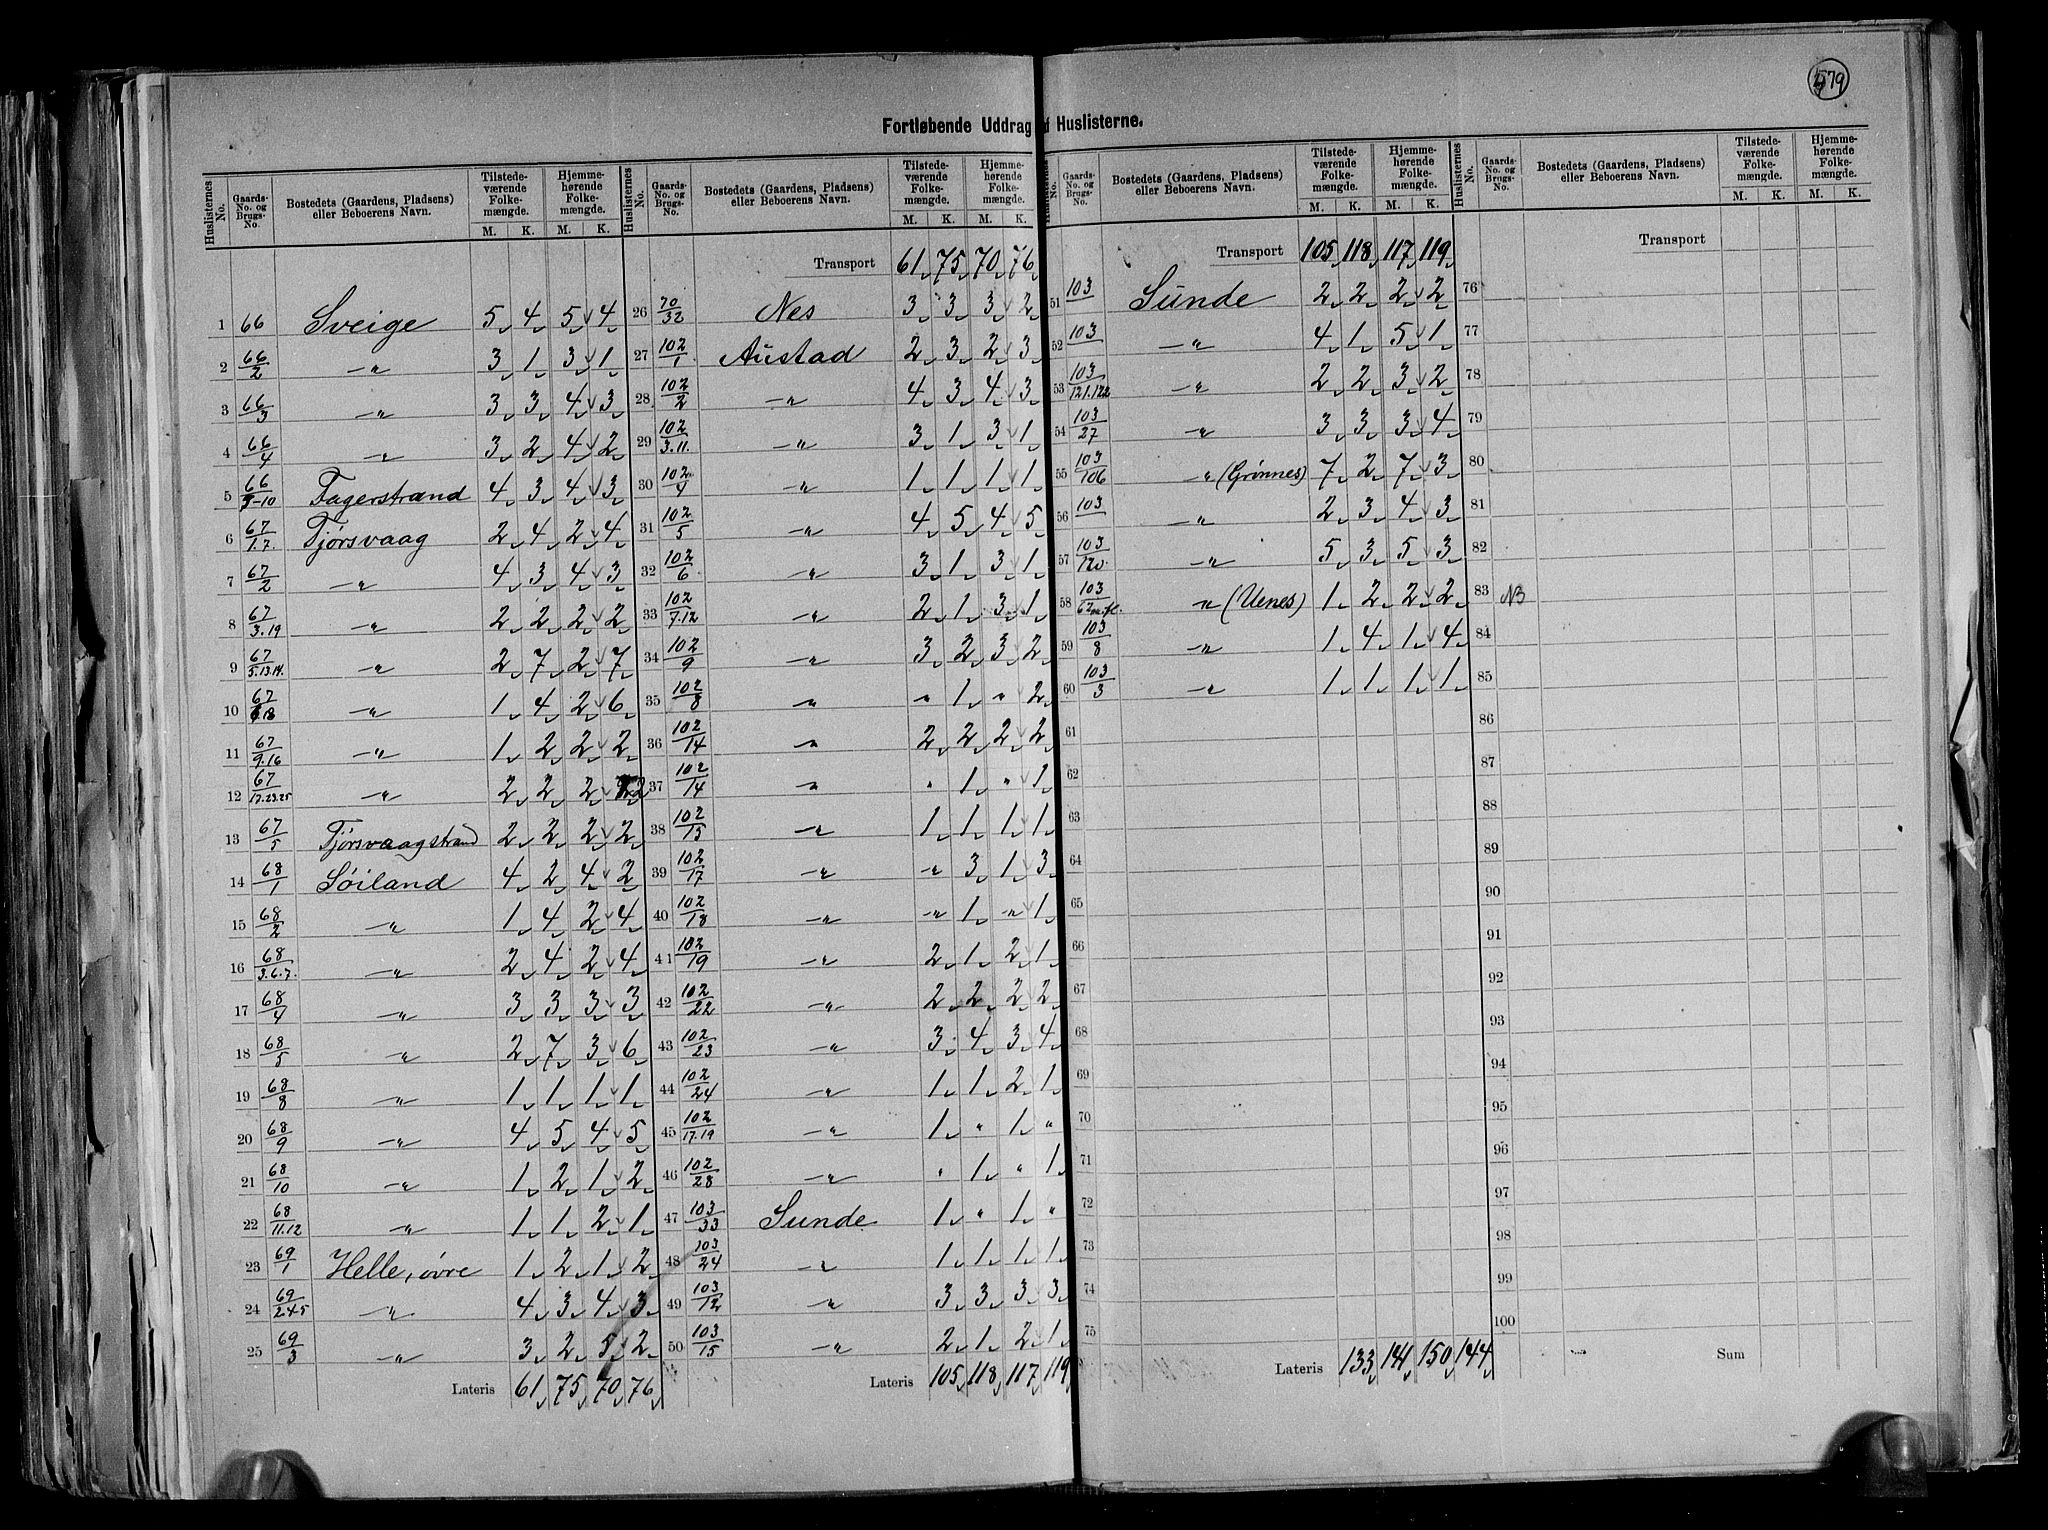 579
Fortløbende Uddrag af Huslisterne.
Huslisternes No. | Gaards-No. og Brugs-No. | Bostedets (Gaardens, Pladsens) eller Beboerens Navn. | Tilstedeværende Folkemængde. M. K. | Hjemmehørende Folkemængde. M. K.
1 66 Sveige 5 4 5 4
2 66/2 -„- 3 1 3 1
3 66/3 -„- 3 3 4 3
4 66/4 -„- 3 2 4 2
5 66/9-10 Fagerstrand 4 3 4 3
6 67/1.7. Tjørsvaag 2 4 2 4
7 67/2 -„- 4 3 4 3
8 67/3.19 -„- 2 2 2 2
9 67/5.13.14. -„- 2 7 2 7
10 67/18 -„- 1 4 2 6
11 67/9.16 -„- 1 2 2 2
12 67/17.23.25 -„- 2 2 2 2
13 67/5 Tjørsvaagstrand 2 2 2 2
14 68/1 Søiland 4 2 4 2
15 68/2 -„- 1 4 2 4
16 68/3.6.7. -„- 2 4 2 4
17 68/4 -„- 3 3 3 3
18 68/5 -„- 2 7 3 6
19 68/8 -„- 1 1 1 1
20 68/9 -„- 4 5 4 5
21 68/10 -„- 1 2 1 2
22 68/11.12 -„- 1 1 2 1
23 69/1 Helle, øvre 1 2 1 2
24 69/2.4.5 -„- 4 3 4 3
25 69/3 -„- 3 2 5 2
Lateris 61 75 70 76
Huslisternes No. | Gaards-No. og Brugs-No. | Bostedets (Gaardens, Pladsens) eller Beboerens Navn. | Tilstedeværende Folkemængde. M. K. | Hjemmehørende Folkemængde. M. K.
Transport 61 75 70 76
26 70/32 Nes 3 3 3 2
27 102/1 Austad 2 3 2 3
28 102/2 -„- 4 3 4 3
29 102/3.11. -„- 3 1 3 1
30 102/4 -„- 1 1 1 1
31 102/5 -„- 4 5 4 5
32 102/6 -„- 3 1 3 1
33 102/7.12 -„- 2 1 3 1
34 102/9 -„- 3 2 3 2
35 102/8 „ „ 1 „ 2
36 102/14 „ 2 2 2 2
37 102/14 „ „ 1 „ 1
38 102/15 -„- 1 1 1 1
39 102/17 -„- -„- 3 1 3
40 102/18 -„- -„- 1 -„- 1
41 102/19 -„- 2 1 2 1
42 102/22 -„- 2 2 2 2
43 102/23 -„- 3 4 3 4
44 102/24 -„- 1 1 2 1
45 102/17.19 -„- 1 „ 1 „
46 102/28 -„- „ 1 „ 1
47 103/33 Sunde 1 „ 1 „
48 103/24 -„- 1 1 1 1
49 103/12 -„- 3 3 3 3
50 103/15 -„- 2 1 2 1
Lateris 105 118 117 119
Huslisternes No. | Gaards-No. og Brugs-No. | Bostedets (Gaardens, Pladsens) eller Beboerens Navn. | Tilstedeværende Folkemængde. M. K. | Hjemmehørende Folkemængde. M. K.
Transport 105 118 117 119
51 103 Sunde 2 2 2 2
52 103 -„- 4 1 5 1
53 103/121.122 -„- 2 2 3 2
54 103/27 -„- 3 3 3 4
55 103/106 -„- (Grønnes) 7 2 7 3
56 103 -„- 2 3 4 3
57 103/120. -„- 5 3 5 3
58 103/62 m.fl. -„- (Uenes) 1 2 2 2
59 103/8 -„- 1 4 1 4
60 103/3 -„- 1 1 1 1
61
62
63
64
65
66
67
68
69
70
71
72
73
74
75
Lateris 133 141 150 144
Huslisternes No. | Gaards-No. og Brugs-No. | Bostedets (Gaardens, Pladsens) eller Beboerens Navn. | Tilstedeværende Folkemængde. M. K. | Hjemmehørende Folkemængde. M. K.
Transport
76
77
78
79
80
81
82
83 NB
84
85
86
87
88
89
90
91
92
93
94
95
96
97
98
99
100
Sum